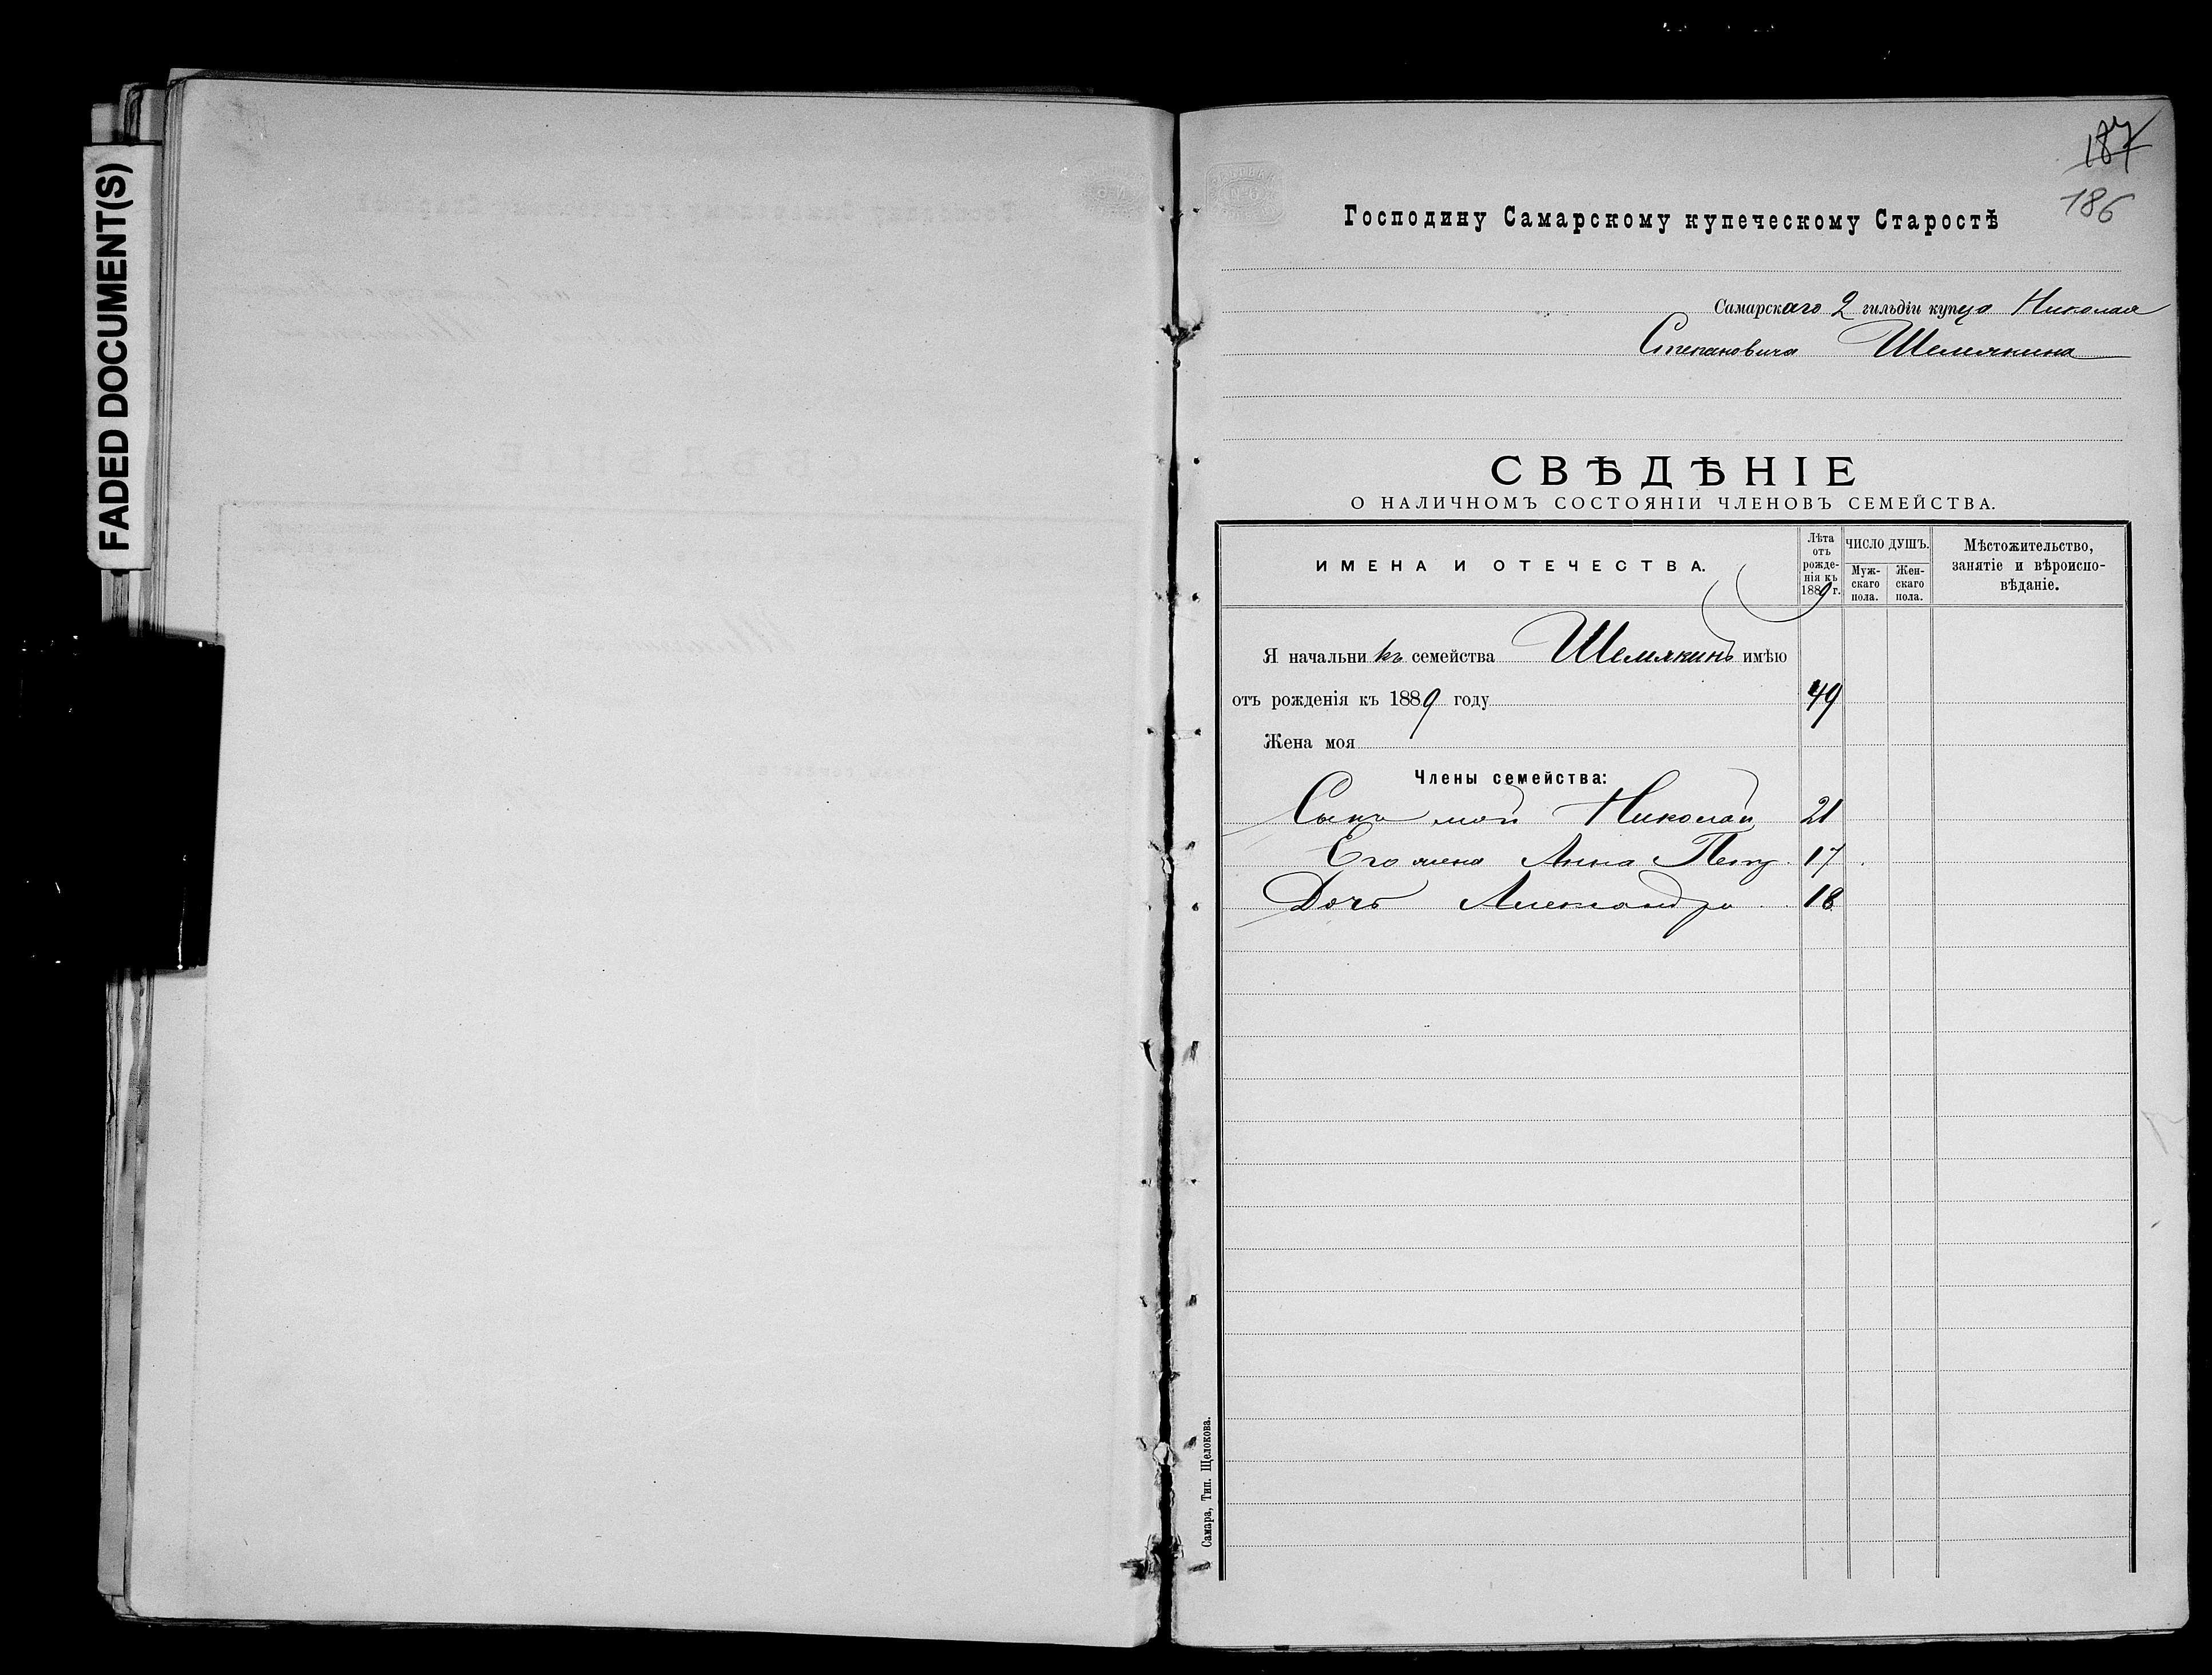 FADED DOCUMENT(S)
187
186
Господину Самарскому купеческому Старостѣ
Самарскаго 2 гильдіи купца Николая
Степановича Шемякина
СВѢДѢНІЕ
О НАЛИЧНОМЪ СОСТОЯНІИ ЧЛЕНОВЪ СЕМЕЙСТВА.
ИМЕНА И ОТЕЧЕСТВА.
Лѣта
отъ
рожде-
нія къ
1889 г.
ЧИСЛО ДУШЪ.
Муж-
скаго
пола.
Жен-
скаго
пола.
Мѣстожительство,
занятіе и вѣроиспо-
вѣданіе.
Я начальникъ семейства Шемякинъ имѣю
отъ рожденія къ 1889 году 49
Жена моя
Члены семейства:
Сынъ мой Николай 21
Его жена Анна Петр 17
Дочь Александра 18
Самара, Тип. Щелокова.